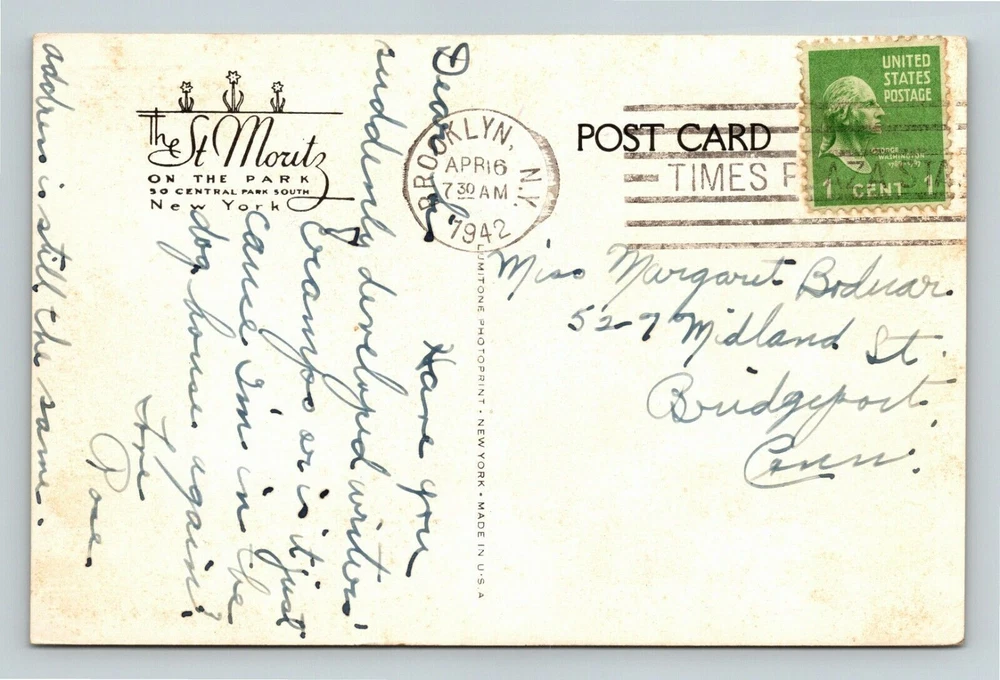 the St Moritz
ON THE PARK
50 CENTRAL PARK SOUTH
New York
BROOKLYN, N.Y.
APR 16
7 30 AM
1942
POST CARD
TIMES
UNITED
STATES
POSTAGE
GEORGE
WASHINGTON
1 CENT 1
Miss Margaret Bodnar
527 Midland St.
Bridgeport
Conn.
LUMITONE PHOTOPRINT · NEW YORK · MADE IN U.S.A
Have you
suddenly developed writers'
cramps or is it just
cause I'm in the
dog house again?
Love
Rose.
address is still the same.